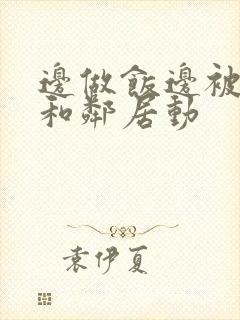 邊做飯邊被
和鄰居動
袁伊夏